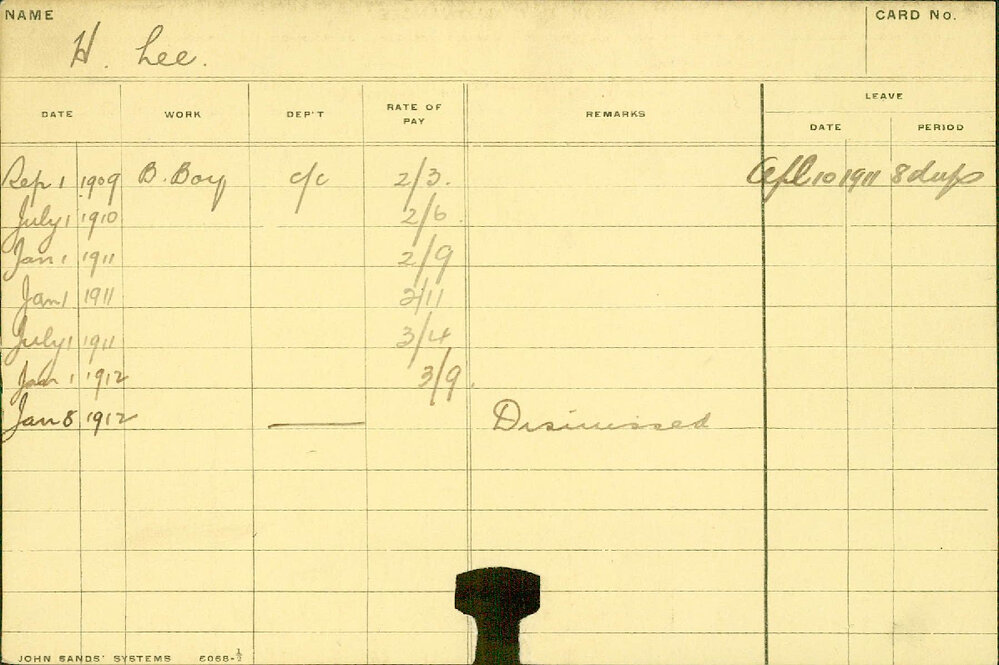 NAME
H. Lee.
CARD No.
DATE WORK DEP'T RATE OF PAY REMARKS LEAVE
DATE PERIOD
Sep 1 1909 B. Boy c/c 2/3. Apl 10 1911 8 days
July 1 1910 2/6.
Jan 1 1911 2/9
Jan 1 1911 2/11
July 1 1911 3/4
Jan 1 1912 3/9.
Jan 8 1912 — Dismissed
JOHN SANDS' SYSTEMS 6068-½